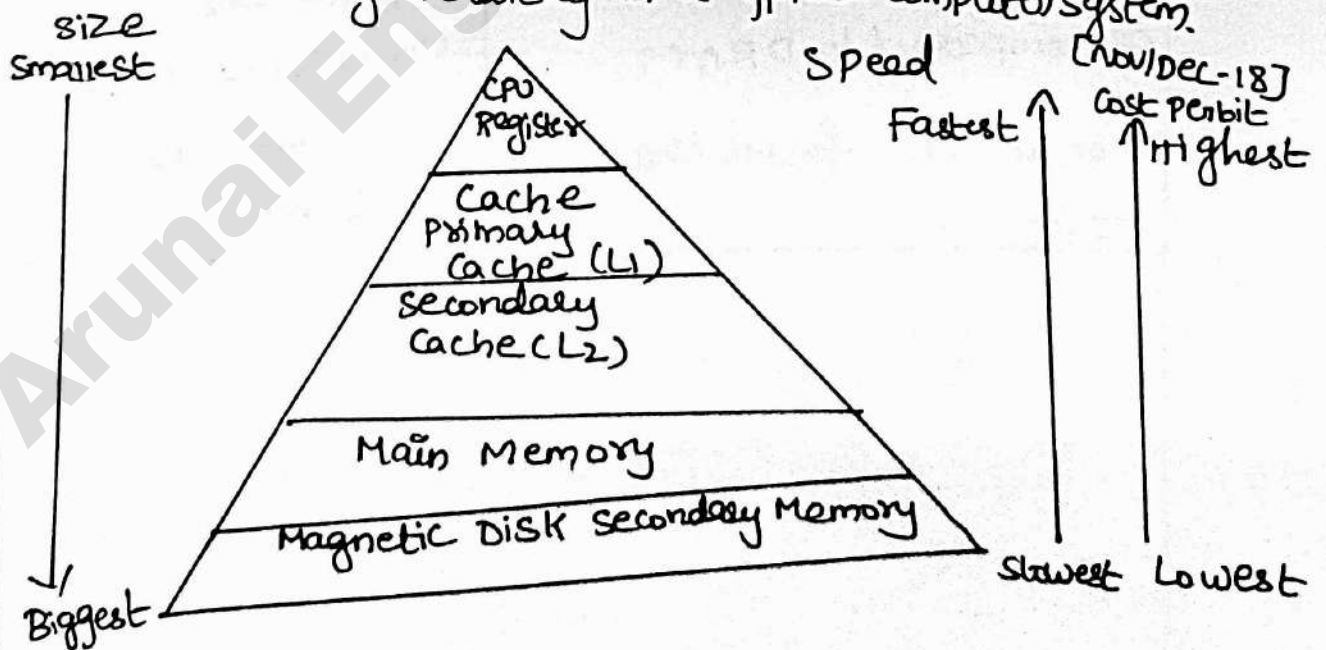 in computer system.
[Nov/Dec-18]
size
Smallest
Biggest
CPU
Register
Cache
Primary
Cache (L1)
Secondary
Cache (L2)
Main Memory
Magnetic Disk Secondary Memory
Speed
Fastest
Slowest
Cost Perbit
Highest
Lowest
Arunai Eng